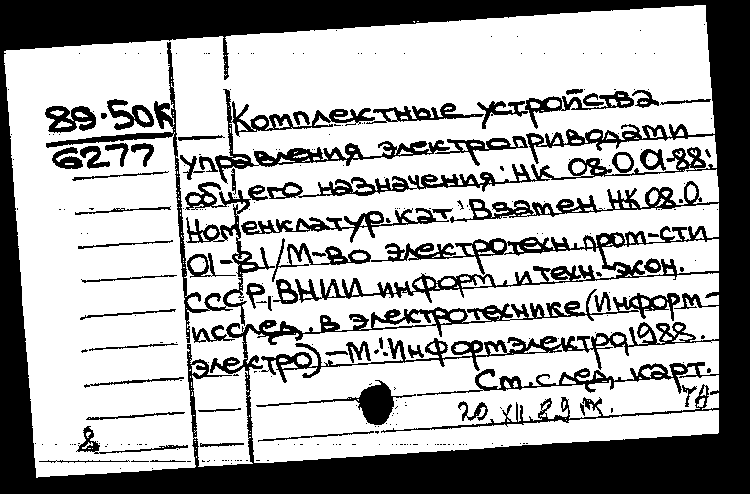 89-50К
6277
Комплектные устройства
управления электроприводами
общего назначения: НК 08.0.01-88:
Номенклатур. кат.: Взамен НК 08.0.
01-81/М-во электротехн. пром-сти
СССР, ВНИИ информ. и техн.-экон.
исслед. в электротехнике (Информ-
электро).-М.: Информэлектро, 1988.
См. след. карт.
20.XII.89
2